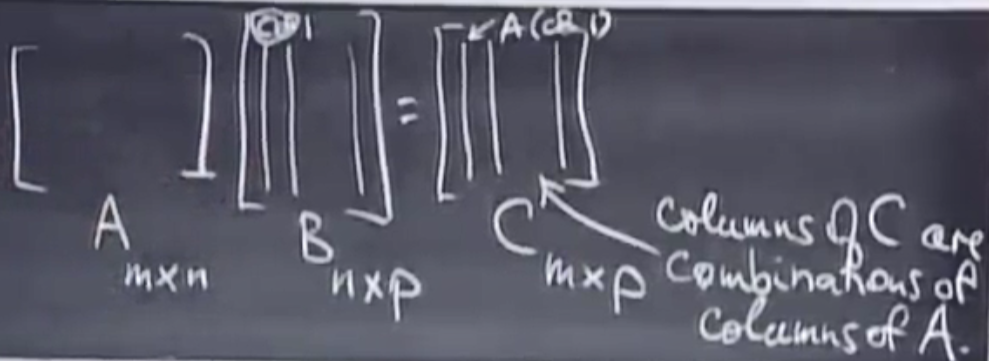 col 1
A(col 1)
=
A
m×n
B
n×p
C
m×p
columns of C are
combinations of
columns of A.